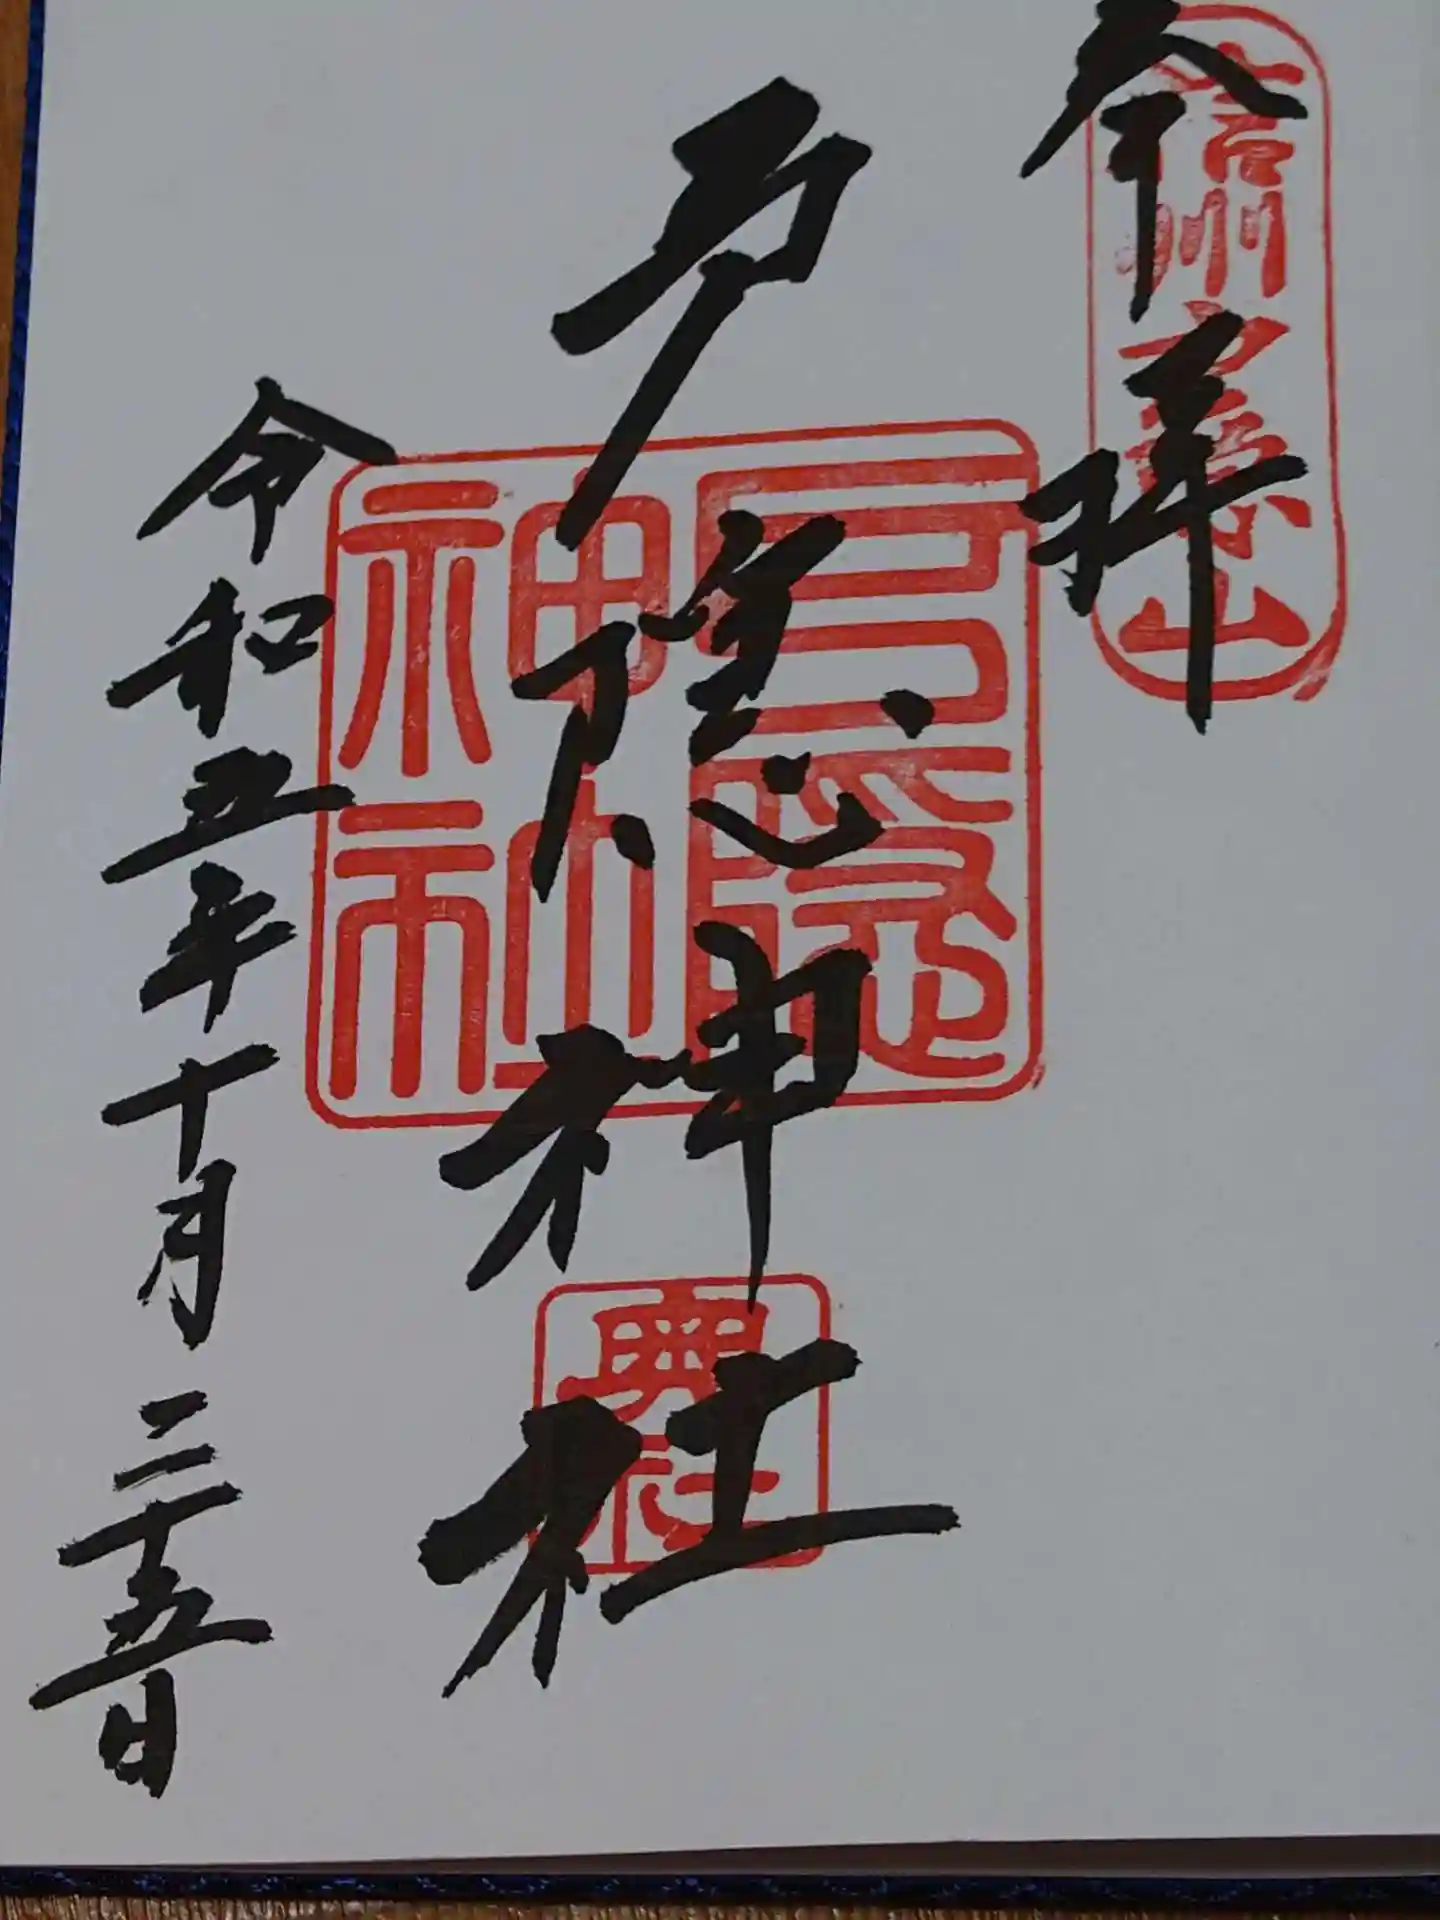 奉拝
信州戸隠山
戸隠神社
戸隠
神社
奥社
令和五年十月二十五日